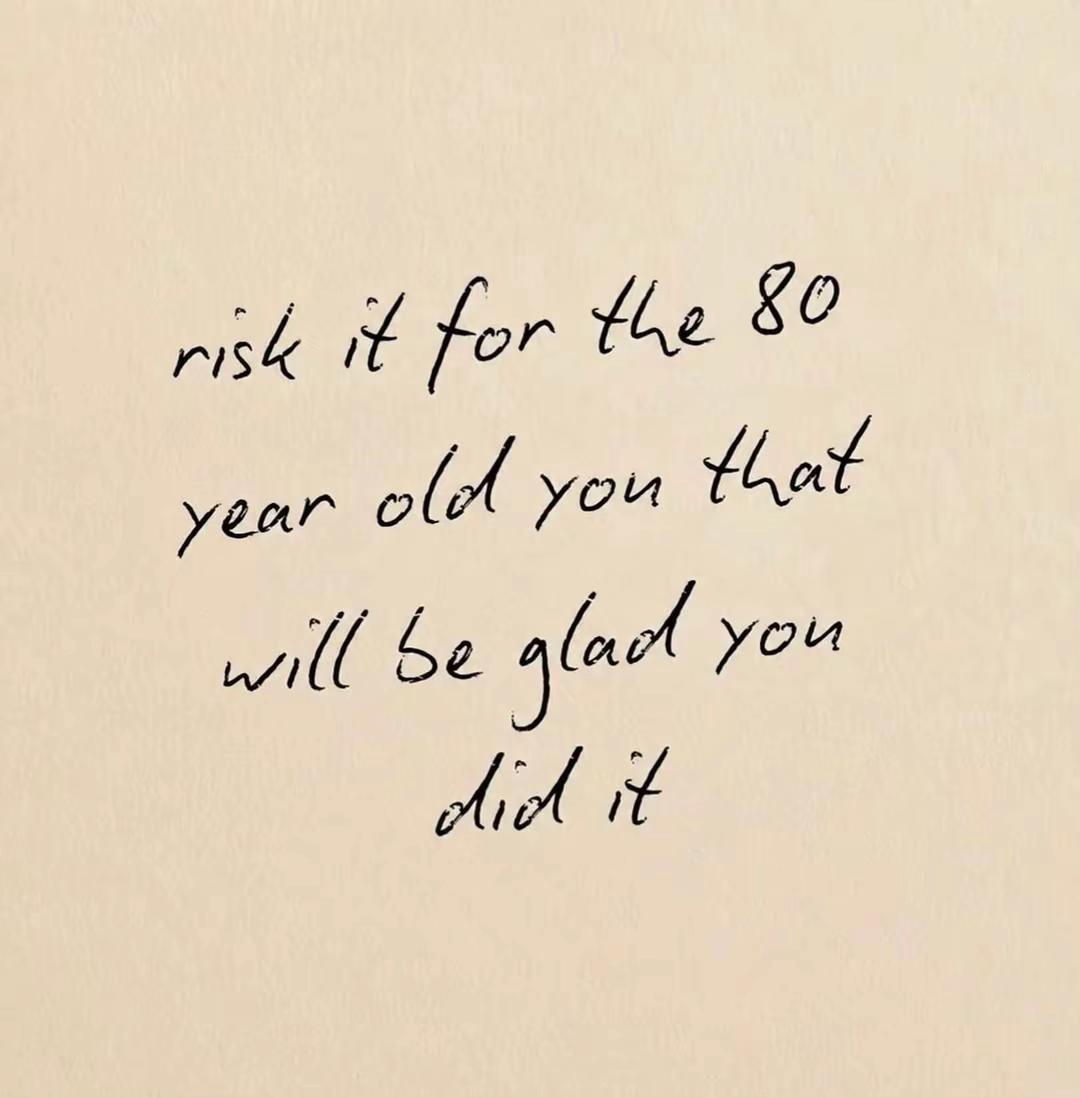 risk it for the 80
year old you that
will be glad you
did it